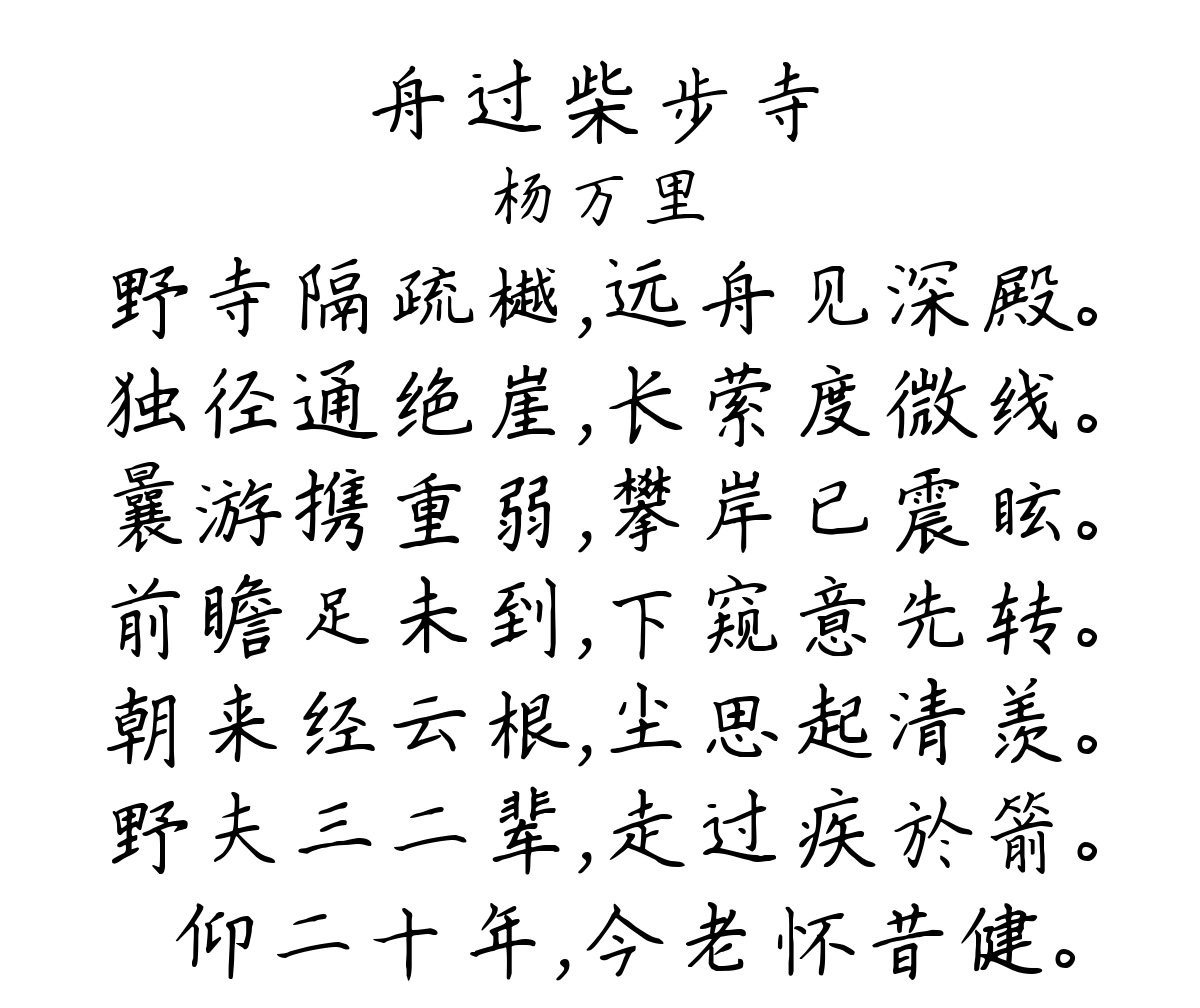 舟过柴步寺
杨万里
野寺隔疏樾,远舟见深殿。
独径通绝崖,长萦度微线。
曩游携重弱,攀岸已震眩。
前瞻足未到,下窥意先转。
朝来经云根,尘思起清羡。
野夫三二辈,走过疾於箭。
仰二十年,今老怀昔健。